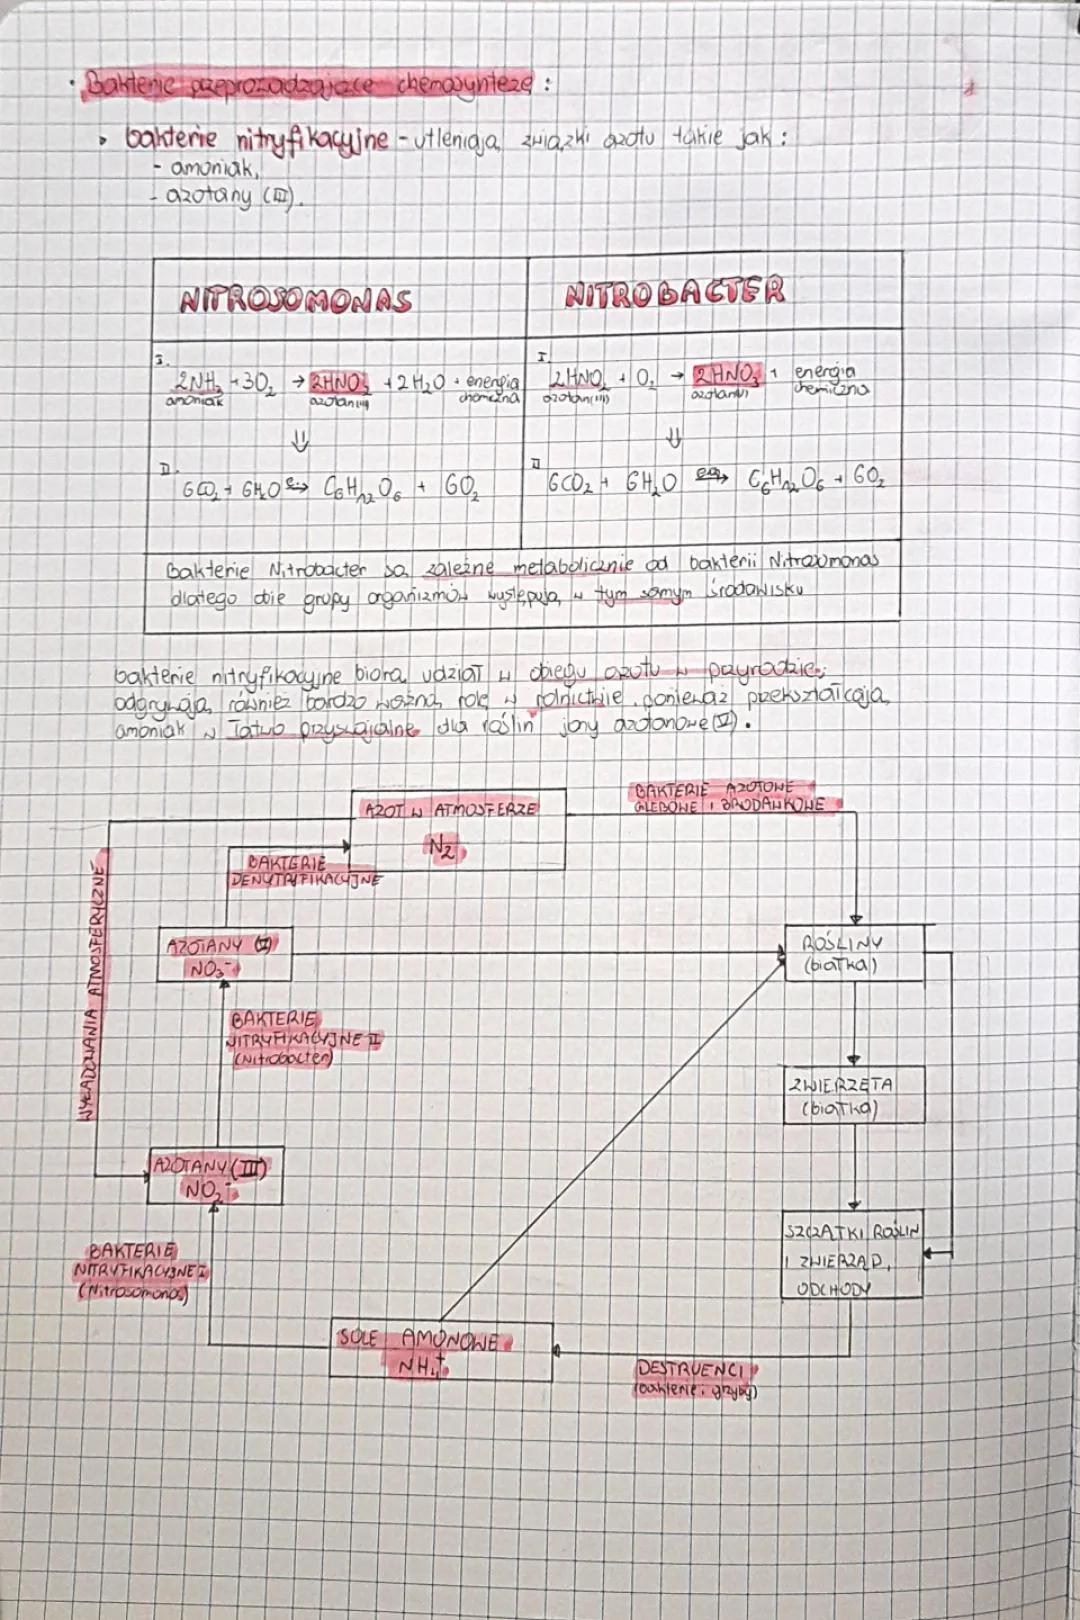 • Bakterie przeprowadzające chemosyntezę :
bakterie nitryfikacyjne - utleniają związki azotu takie jak :
- amoniak,
- azotany (III).
NITROSOMONAS
NITROBACTER
I.
2NH₃ + 3O₂ → 2HNO₂ + 2H₂O + energia
amoniak azotan(III) chemiczna
⇓
II.
6CO₂ + 6H₂O → C₆H₁₂O₆ + 6O₂
I.
2HNO₂ + O₂ → 2HNO₃ + energia
azotan(III) azotan(V) chemiczna
⇓
II
6CO₂ + 6H₂O → C₆H₁₂O₆ + 6O₂
Bakterie Nitrobacter są zależne metabolicznie od bakterii Nitrosomonas
dlatego obie grupy organizmów występują w tym samym środowisku
bakterie nitryfikacyjne biorą udział w obiegu azotu w przyrodzie;
odgrywają również bardzo ważną rolę w rolnictwie, ponieważ przekształcają
amoniak w łatwo przyswajalne dla roślin jony azotanowe (V).
AZOT W ATMOSFERZE
N₂
BAKTERIE AZOTOWE
GLEBOWE I BRODAWKOWE
BAKTERIE
DENYTRYFIKACYJNE
WYŁADOWANIA ATMOSFERYCZNE
AZOTANY (V)
NO₃⁻
ROŚLINY
(białka)
BAKTERIE
NITRYFIKACYJNE II
(Nitrobacter)
ZWIERZĘTA
(białka)
AZOTANY (III)
NO₂⁻
SZCZĄTKI ROŚLIN
I ZWIERZĄD,
ODCHODY
BAKTERIE
NITRYFIKACYJNE I
(Nitrosomonas)
SOLE AMONOWE
NH₄⁺
DESTRUENCI
(bakterie i grzyby)